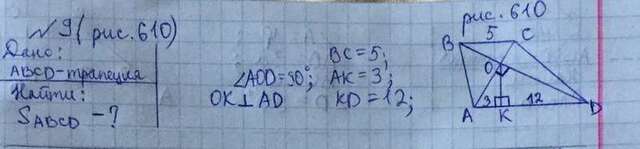 № 9 (рис. 610)
Дано:
ABCD-трапеция
Найти:
SABCD - ?
∠AOD = 90°;
OK ⊥ AD
BC = 5;
AK = 3;
KD = 12;
рис. 610
B 5 C
O
A 3 K 12 D